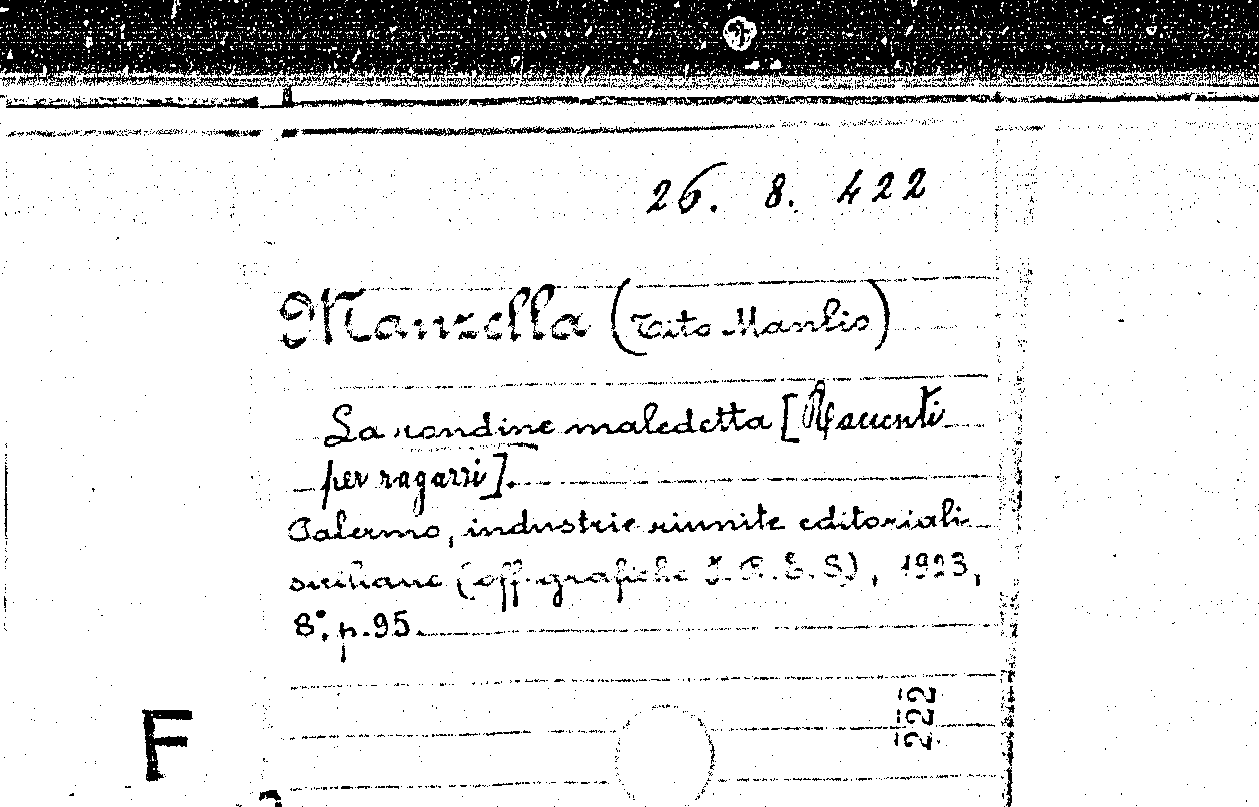 26. 8. 422
Manzella (Tito Manlio)
La rondine maledetta [Racconti
per ragazzi].
Palermo, industrie riunite editoriali
siciliane (off. grafiche I.R.E.S), 1923,
8°, p. 95
222
F